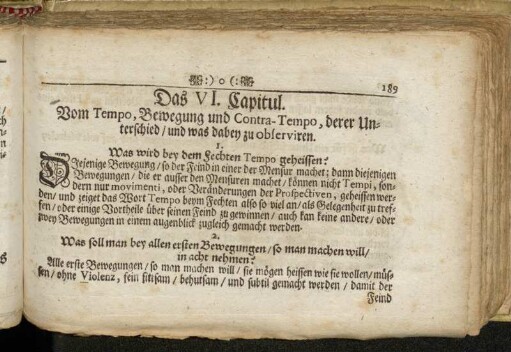 :) o (: 189
Das VI. Capitul.
Vom Tempo, Bewegung und Contra-Tempo, derer Un-
terschied / und was dabey zu observiren.
1.
Was wird bey dem Fechten Tempo geheissen?
Diejenige Bewegung / so der Feind in einer der Mensur machet; dann diejenigen
Bewegungen / die er ausser den Mensuren machet / können nicht Tempi, son-
dern nur movimenti, oder Veränderungen der Prospectiven, geheissen wer-
den / und zeiget das Wort Tempo beym Fechten also so viel an / als Gelegenheit zu tref-
fen / oder einige Vortheile über seinen Feind zu gewinnen / auch kan keine andere / oder
zwey Bewegungen in einem augenblick zugleich gemacht werden.
2.
Was soll man bey allen ersten Bewegungen / so man machen will /
in acht nehmen?
Alle erste Bewegungen / so man machen will / sie mögen heissen wie sie wollen / müs-
sen / ohne Violenz, fein sittsam / behutsam / und subtil gemacht werden / damit der
Feind